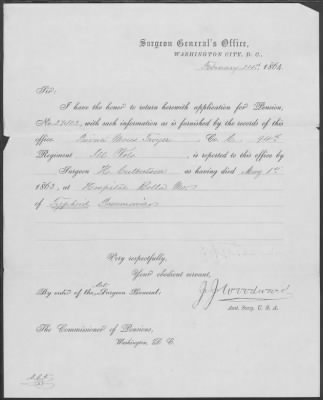 Surgeon General's Office,
WASHINGTON CITY, D. C.,
February 1864
Sir:
I have the honor to return herewith application for Pension,
No. with such information as is furnished by the records of this
office. Co. 94th
Regiment Ill Vols, is reported to this office by
Surgeon H. Culbertson as having died May 1st
1863, at Hospital Rolla Mo.
of Typhoid Pneumonia
Very respectfully,
Your obedient servant,
By order of the Act. Surgeon General:
J J Woodward
Asst. Surg. U. S. A.
The Commissioner of Pensions,
Washington, D. C.